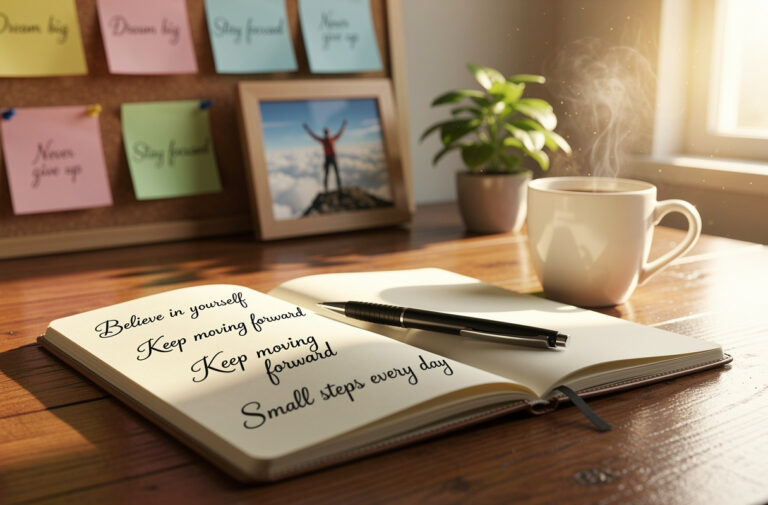 Dream big
Dream big
Stay forward
Never
give up
Never
give up
Stay forward
Believe in yourself
Keep moving forward
Keep moving
forward
Small steps every day